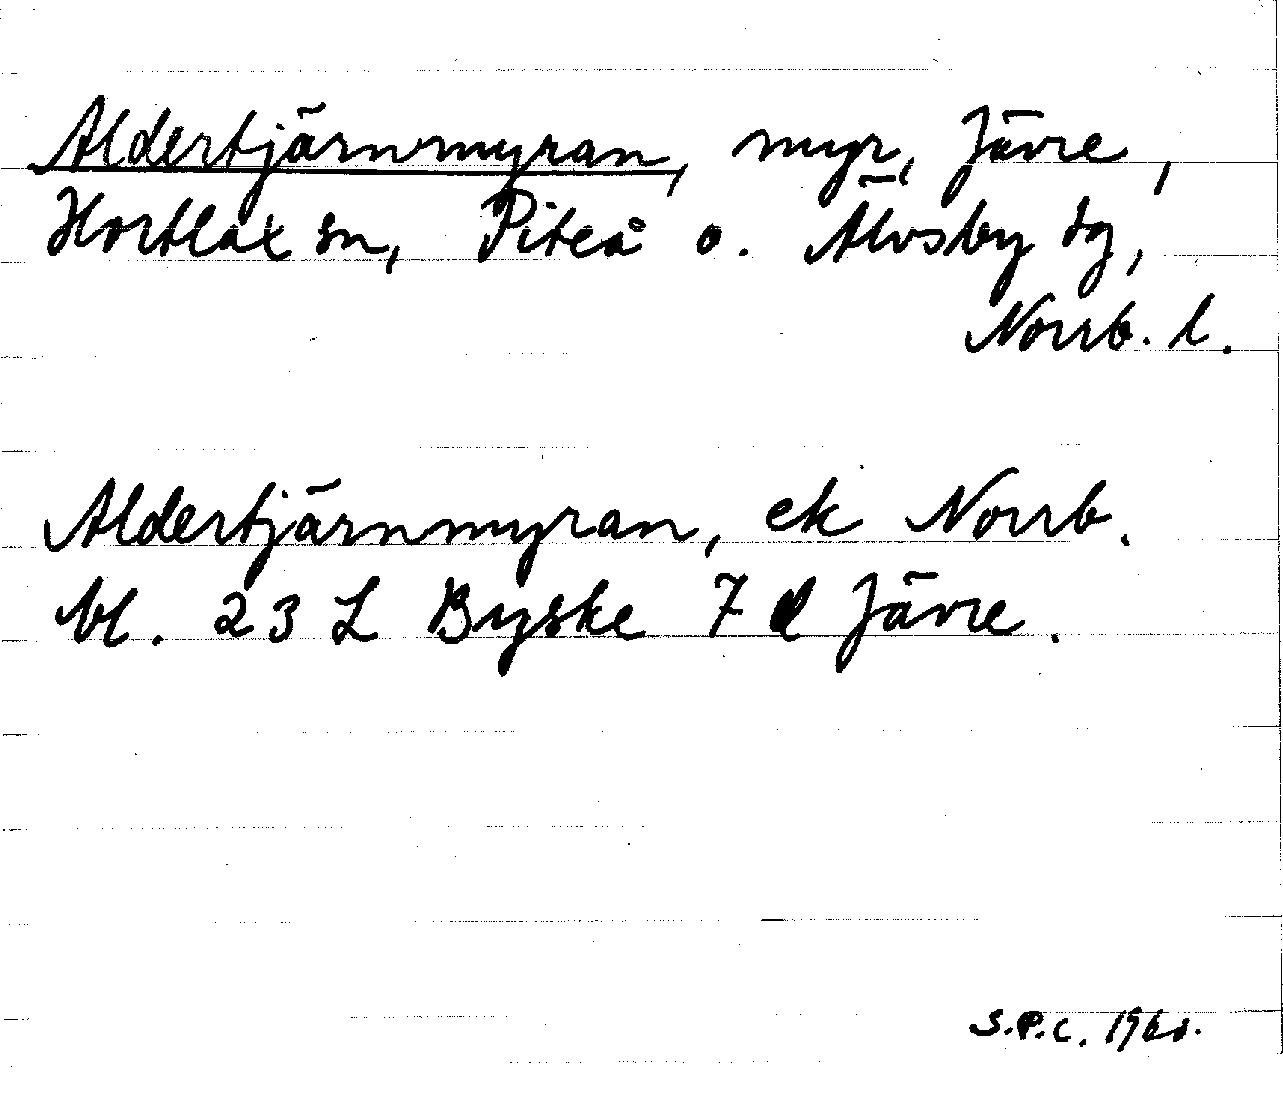 Aldertjärnmyran, myr, Jävre,
Hortlax sn, Piteå o. Älvsby tg,
Norrb. l.
Aldertjärnmyran, ek Norrb.
bl. 23 L Byske 7 d Jävre.
S.P.C.